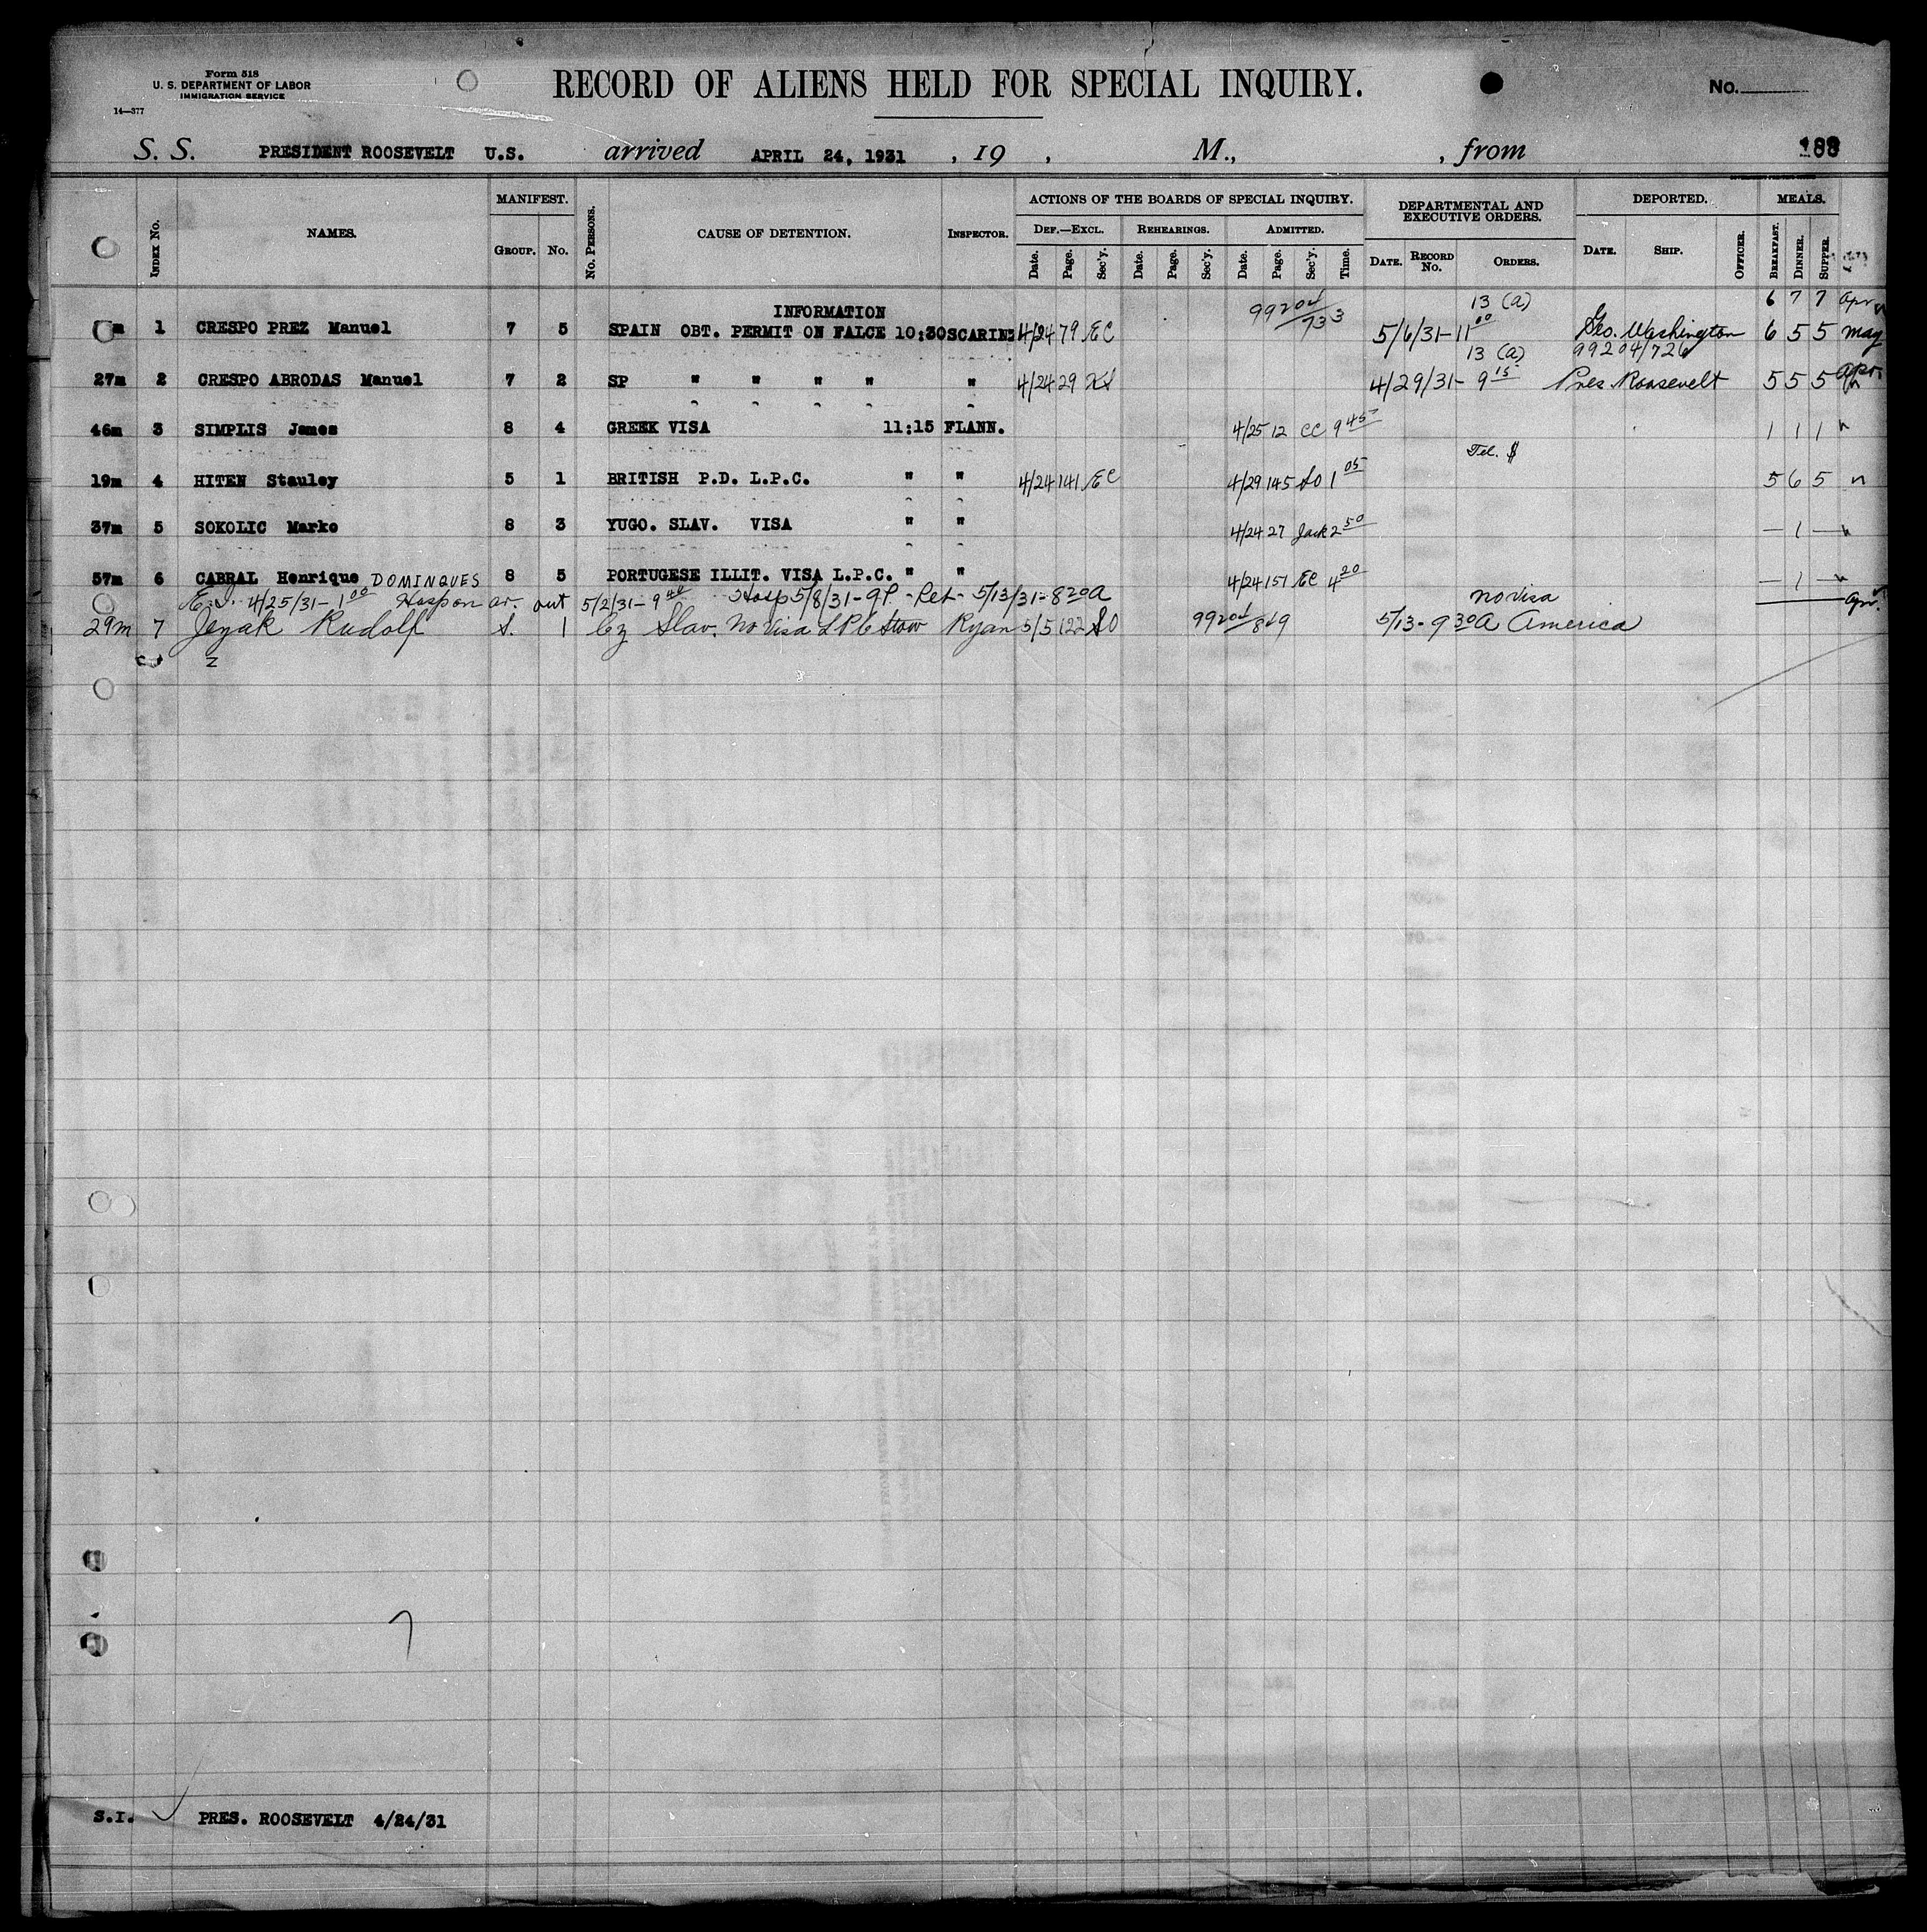 Form 518
U. S. DEPARTMENT OF LABOR
IMMIGRATION SERVICE
14—377
RECORD OF ALIENS HELD FOR SPECIAL INQUIRY.
No.
S. S. PRESIDENT ROOSEVELT U.S. arrived APRIL 24, 1931 , 19 , M., , from
INDEX No. NAMES. MANIFEST. GROUP. No. No. PERSONS. CAUSE OF DETENTION. INSPECTOR. ACTIONS OF THE BOARDS OF SPECIAL INQUIRY. DEF.—EXCL. Date. Page. Sec'y. REHEARINGS. Date. Page. Sec'y. ADMITTED. Date. Page. Sec'y. Time. DEPARTMENTAL AND EXECUTIVE ORDERS. DATE. RECORD No. ORDERS. DEPORTED. DATE. SHIP. OFFICER. MEALS. BREAKFAST. DINNER. SUPPER.
INFORMATION 99204/733 13 (a) 6 7 7 Apr
m 1 CRESPO PREZ Manuel 7 5 SPAIN OBT. PERMIT ON FALCE 10:30 SCARINE 4/24 79 EC 5/6/31-11 00 Geo. Washington 6 5 5 May
13 (a) 99204/726
27m 2 CRESPO ABRODAS Manuel 7 2 SP " " " " " 4/24 29 4/29/31- 9 15 Pres Roosevelt 5 5 5 Apr.
46m 3 SIMPLIS James 8 4 GREEK VISA 11:15 FLANN. 4/25 12 CC 9 45 1 1 1 "
Tel. $
19m 4 HITEN Stauley 5 1 BRITISH P.D. L.P.C. " " 4/24 141 EC 4/29 145 SO 1 05 5 6 5 "
37m 5 SOKOLIC Marko 8 3 YUGO. SLAV. VISA " " 4/24 27 Jack 2 50 — 1 — "
57m 6 CABRAL Henrique DOMINQUES 8 5 PORTUGESE ILLIT. VISA L.P.C. " " 4/24 151 EC 4 20 — 1 — "
E.I. 4/25/31-1 00 Hosp on ar. out 5/2/31-9 40 Hosp 5/8/31-9P. - Ret- 5/13/31-8 20 A no visa Apr.
29m 7 Jezak Rudolf S. 1 Cz Slav. No Visa LPC Stow Ryan 5/5 122 SO 99204/849 5/13-9 30 A America
z
S.I. PRES. ROOSEVELT 4/24/31